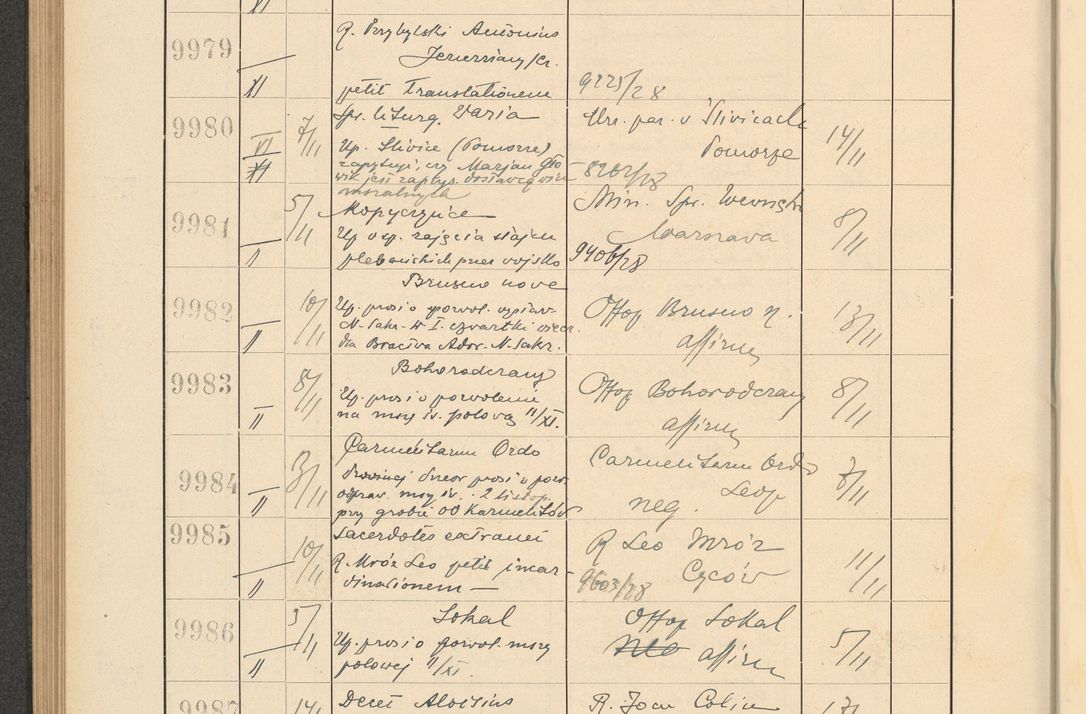 XI
9979
R. Przybylski Antonius
petit Translationem
XI
9225/28
9980
7/11
Spr. liturg. Varia
Up. Śliwice (Pomorze)
zapytuje, czy Marjan Gło-
wik jest zaprys. dostawcą win
mszalnych
VI
XI
Urz. par. w Śliwicach
Pomorze
8202/28
14/11
9981
5/11
Kopyczyńce
Up w sp. zajęcia stajen
plebańskich przez wojsko
II
Min. Spr. Wewnętr
Warszawa
9406/28
8/11
9982
10/11
Brusno nowe
Up. prosi o pozwol. wystaw.
N. Sakr. w I. czwartki wiecz.
dla Bractwa Ador. N. Sakr.
II
Offop Brusno n.
affirm
13/11
9983
8/11
Bohorodczany
Up. prosi o pozwolenie
na mszę św. polową 11/XI.
II
Offop Bohorodczany
affirm
8/11
9984
3/11
Carmelitarum Ordo
prosi o pozw.
odpraw. mszy św. 2 listop.
przy grobie OO Karmelitów
II
Carmelitarum Ordo
Leop
neg.
9985
10/11
Sacerdotes extranei
R. Mróz Leo petit incar-
dinationem —
II
R Leo Mróz
Cyców
9603/28
11/11
9986
5/11
Sokal
Up. prosi o pozwol. mszy
polowej 11/XI.
II
Offop Sokal
affirm
5/11
9987
14/11
Decet Aloisius
R. Joan Colin